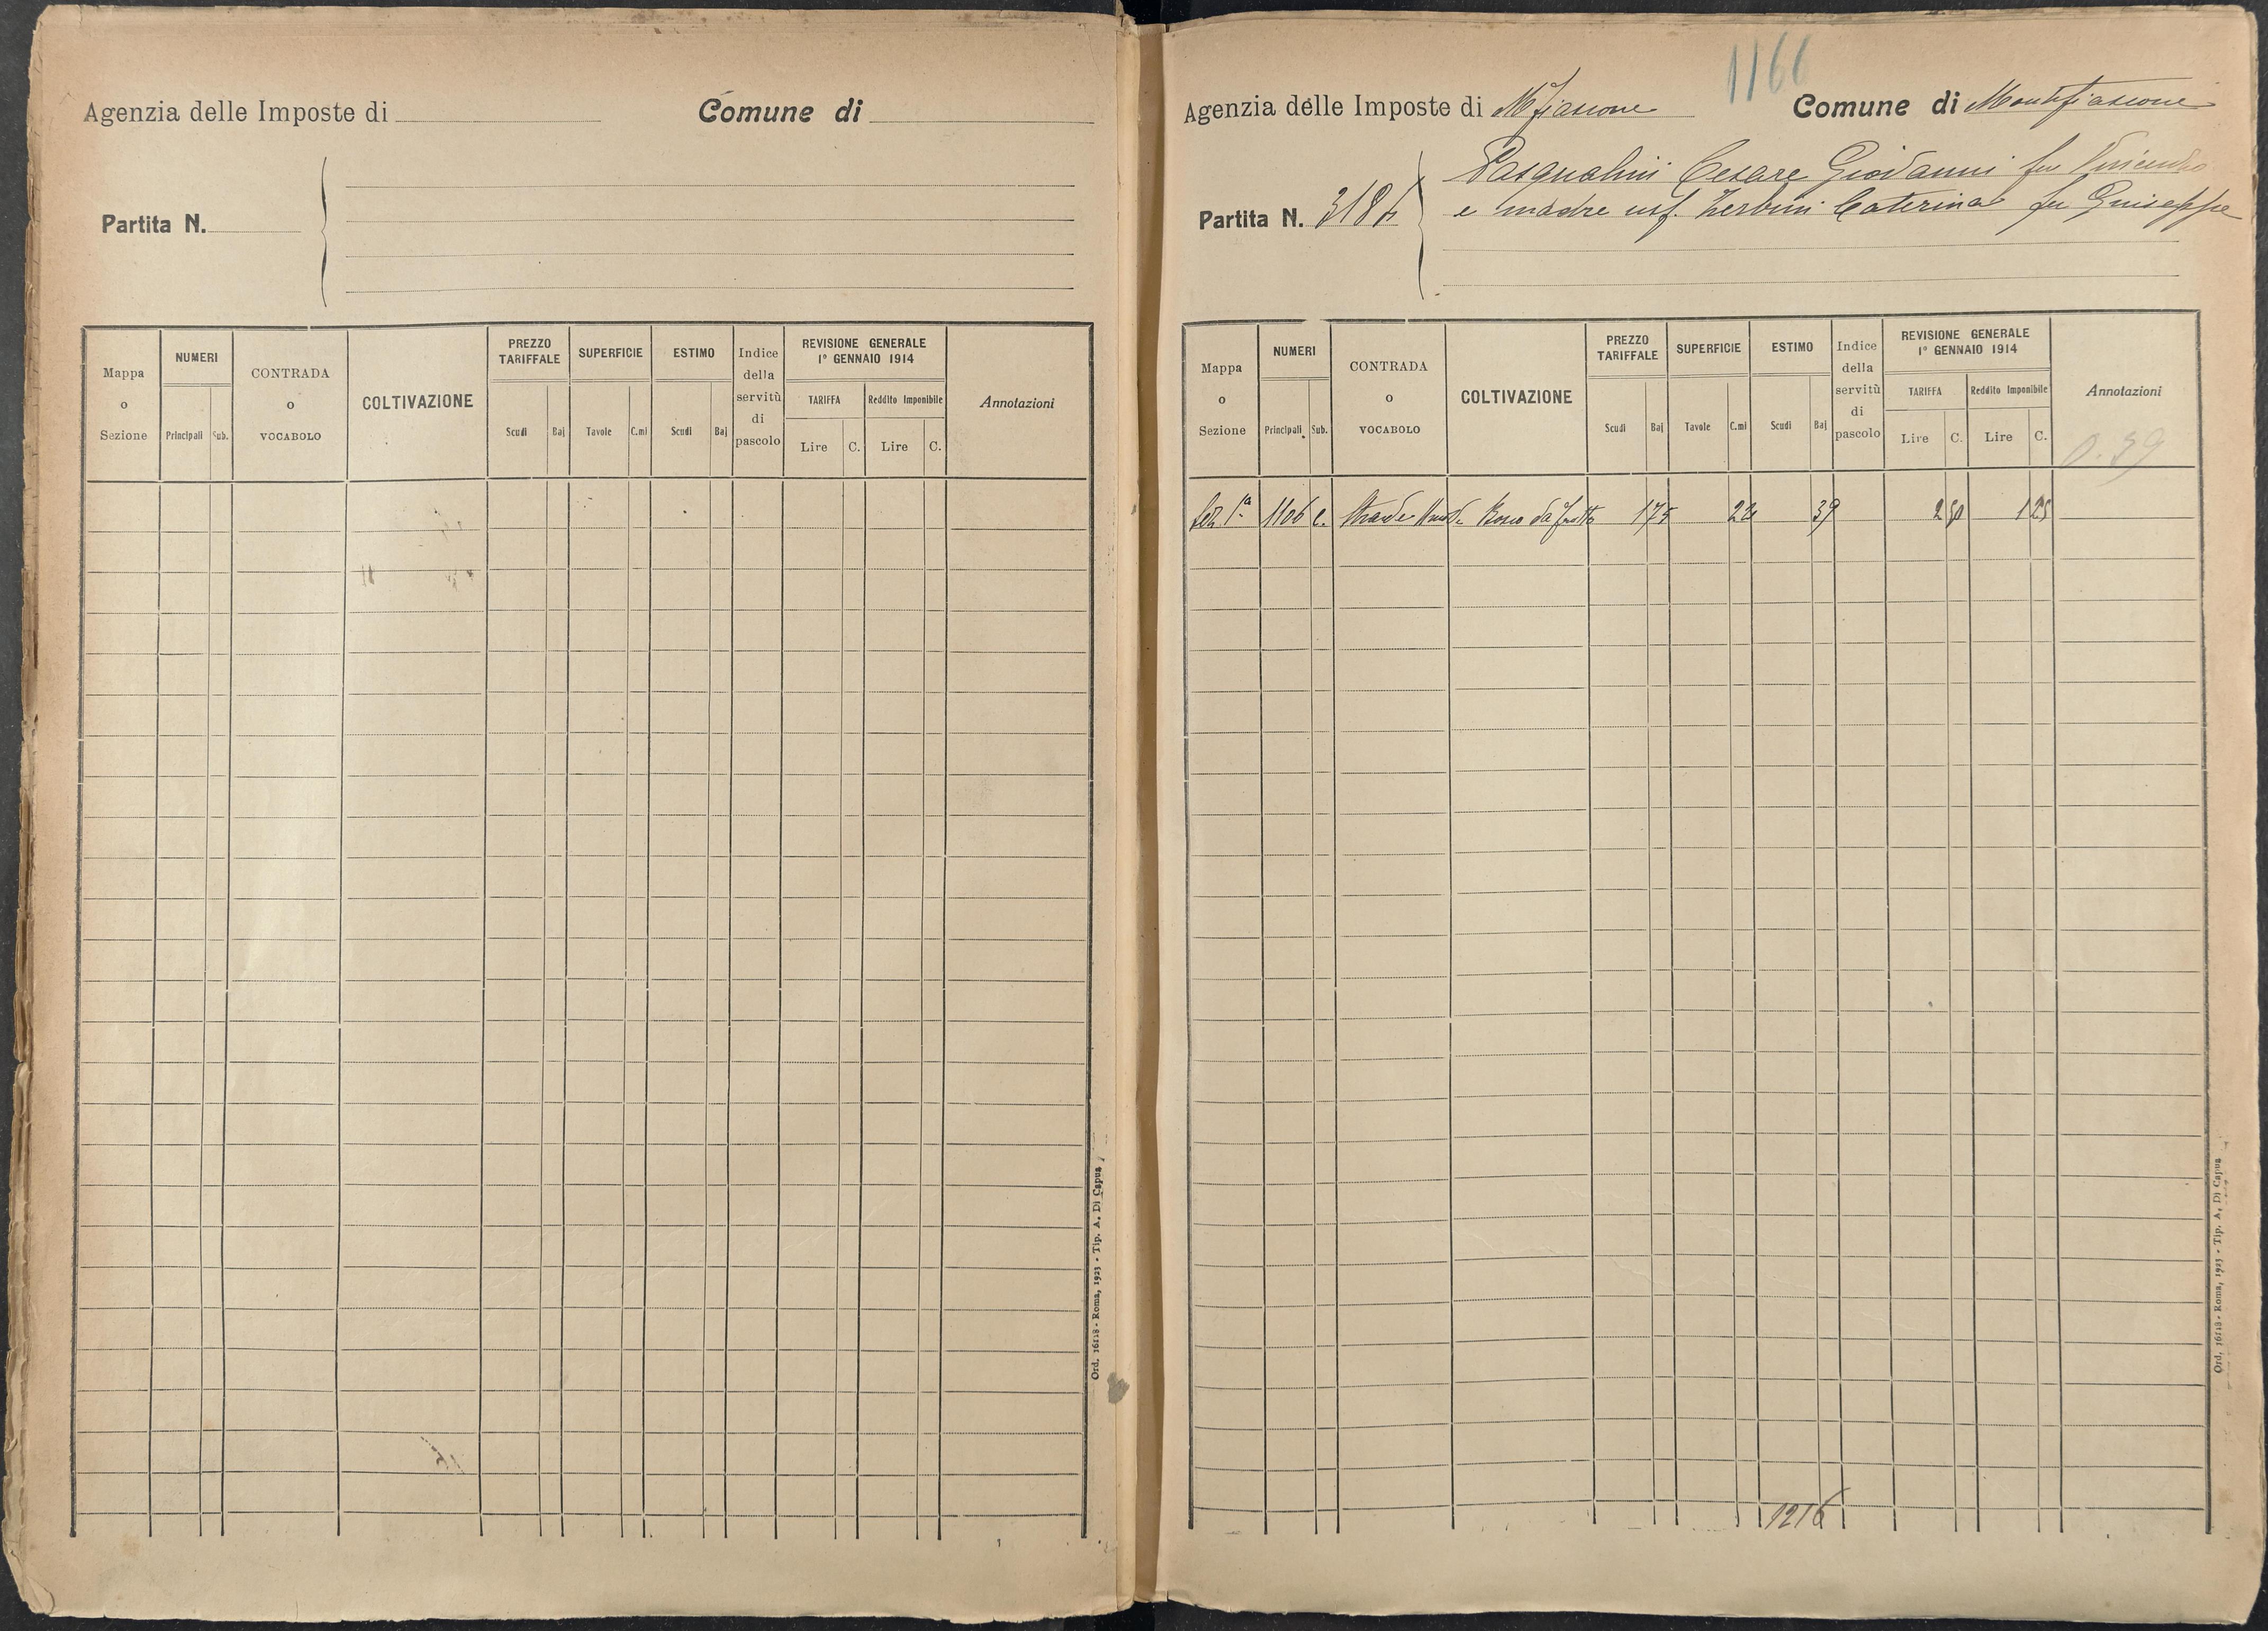 Agenzia delle Imposte di
Comune di
Partita N.
Mappa o Sezione
NUMERI
Principali
Sub.
CONTRADA o VOCABOLO
COLTIVAZIONE
PREZZO TARIFFALE
Scudi
Baj
SUPERFICIE
Tavole
C.mi
ESTIMO
Scudi
Baj
Indice della servitù di pascolo
REVISIONE GENERALE
1° GENNAIO 1914
TARIFFA
Reddito Imponibile
Lire
C.
Lire
C.
Annotazioni
Ord. 16118 - Roma, 1923 - Tip. A. Di Capua
1166
Agenzia delle Imposte di Mfiascone
Comune di Montefiascone
Partita N. 3186
Pasqualini Cesare Giovanni fu Vincenzo
e madre usf. Zerbini Caterina fu Giuseppe
Mappa o Sezione
NUMERI
Principali
Sub.
CONTRADA o VOCABOLO
COLTIVAZIONE
PREZZO TARIFFALE
Scudi
Baj
SUPERFICIE
Tavole
C.mi
ESTIMO
Scudi
Baj
Indice della servitù di pascolo
REVISIONE GENERALE
1° GENNAIO 1914
TARIFFA
Reddito Imponibile
Lire
C.
Lire
C.
Annotazioni
0.39
Sez 1ª 1106 c. Bosco da frutto 175 22 39 2 50 1 25
1216
Ord. 16118 - Roma, 1923 - Tip. A. Di Capua